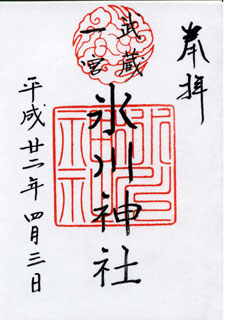 奉拝
武蔵
一宮
氷川神社
平成廿二年四月三日